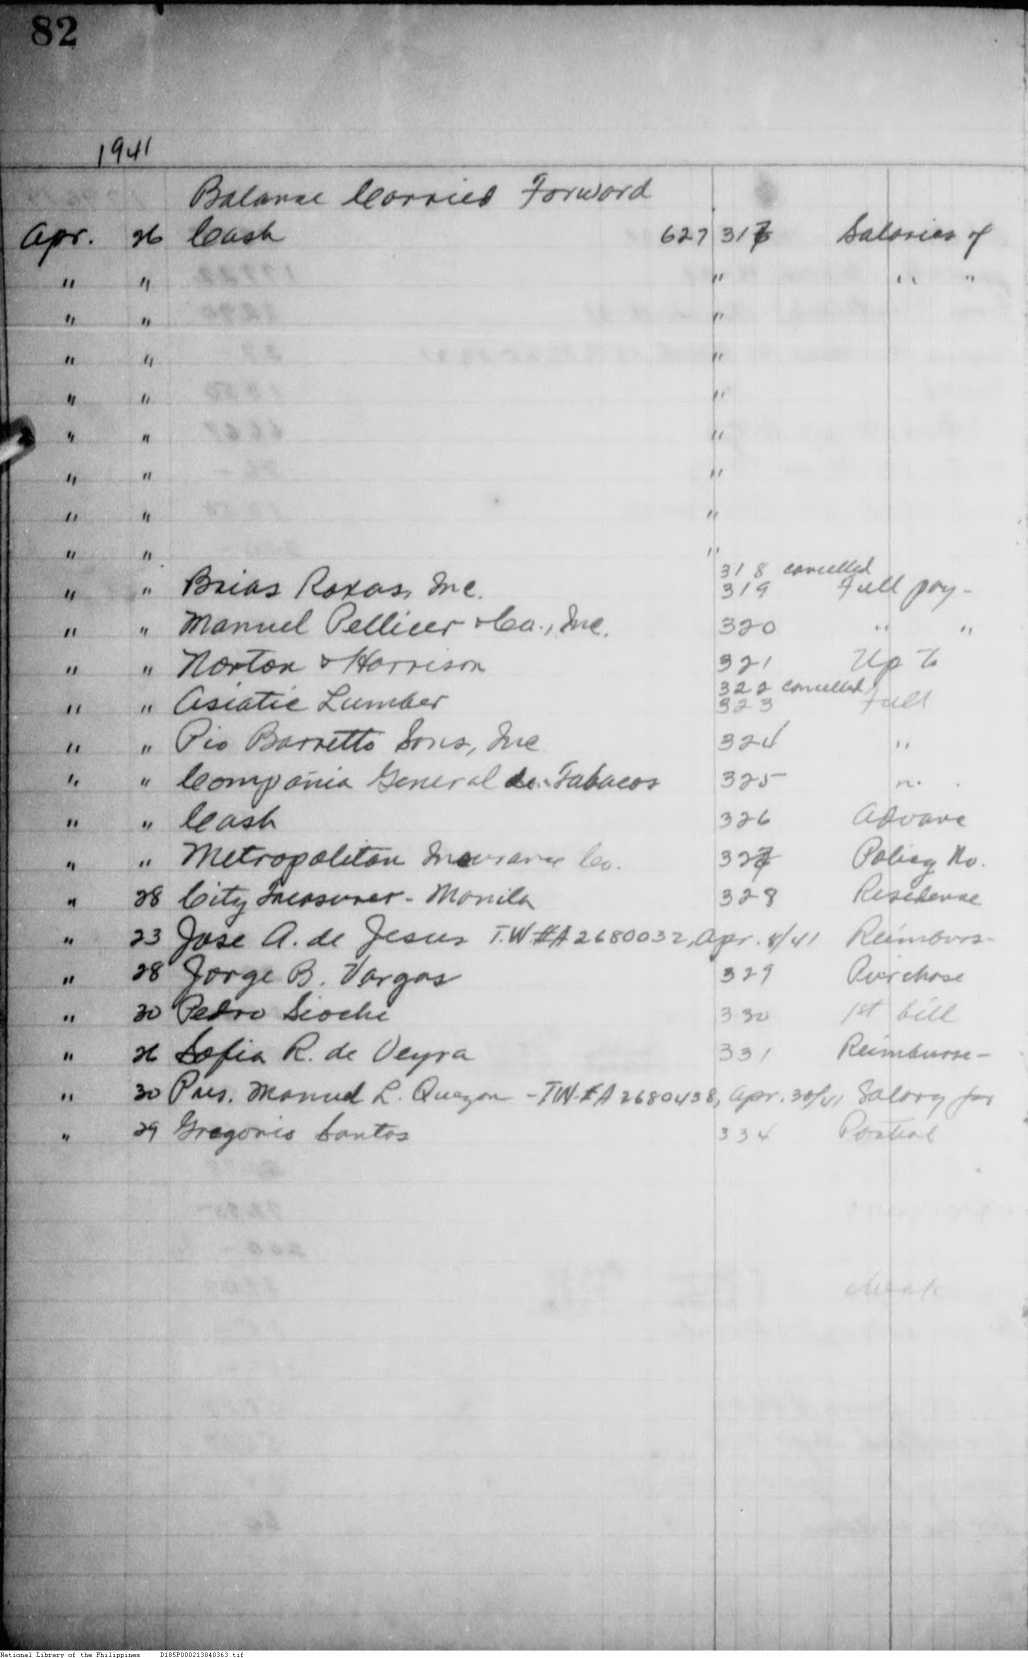 82
1941
Balance Carried Forward
Apr. 26 Cash 627 317 Salaries of
" " " " "
" " "
" " "
" " "
" " "
" " "
" " "
" " "
318 cancelled
" " Brias Roxas, Inc. 319 Full pay-
" " Manuel Pellicer & Co., Inc. 320 " "
" " Norton & Harrison 321 Up to
322 cancelled
" " Asiatic Lumber 323 Full
" " Pio Barretto Sons, Inc 324 "
" " Compañia General de Tabacos 325 ".
" " Cash 326 Advance
" " Metropolitan Insurance Co. 327 Policy No.
" 28 City Treasurer - Manila 328 Residence
" 23 Jose A. de Jesus T.W #A2680032, Apr. 8/41 Reimburs-
" 28 Jorge B. Vargas 329 Purchase
" 30 Pedro Siochi 330 1st bill
" 26 Sofia R. de Veyra 331 Reimburse-
" 30 Pres. Manuel L. Quezon - T.W. #A2680438, Apr. 30/41 Salary for
" 29 Gregorio Santos 334 Partial
National Library of the Philippines D185P000213840363.tif